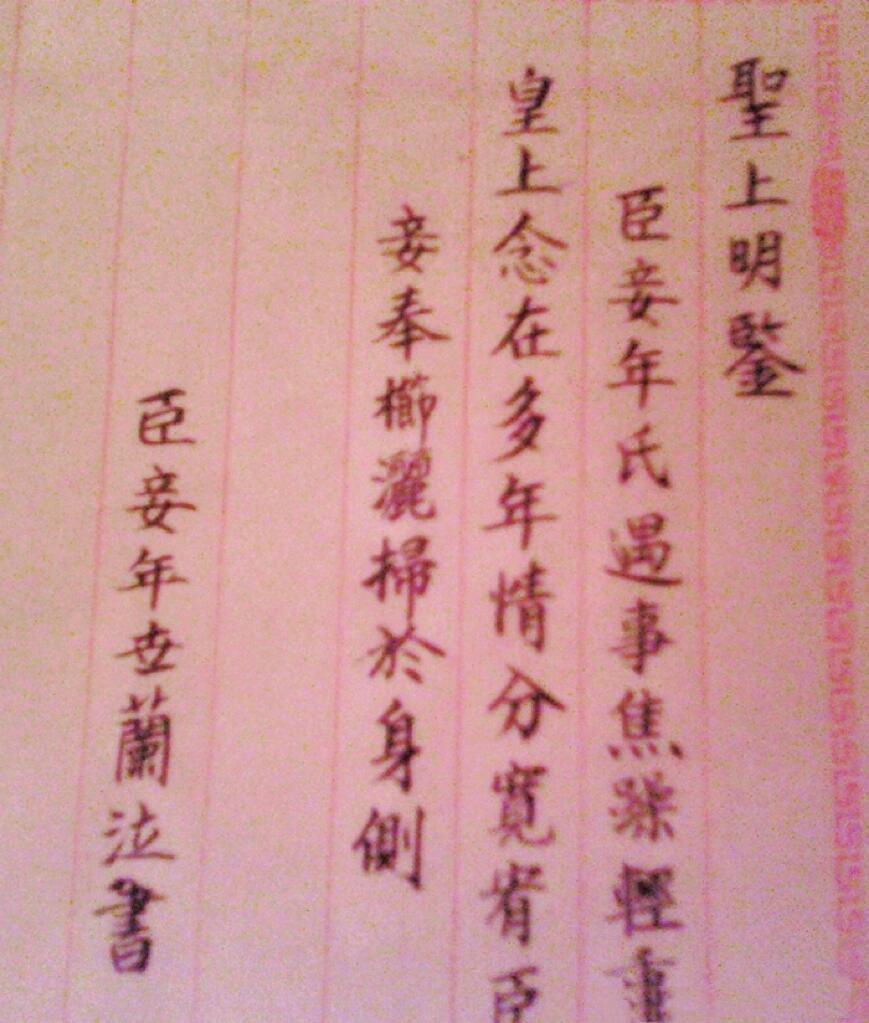 聖上明鑒
臣妾年氏遇事焦躁輕重
皇上念在多年情分寬宥臣
妾奉櫛灑掃於身側
臣妾年世蘭泣書